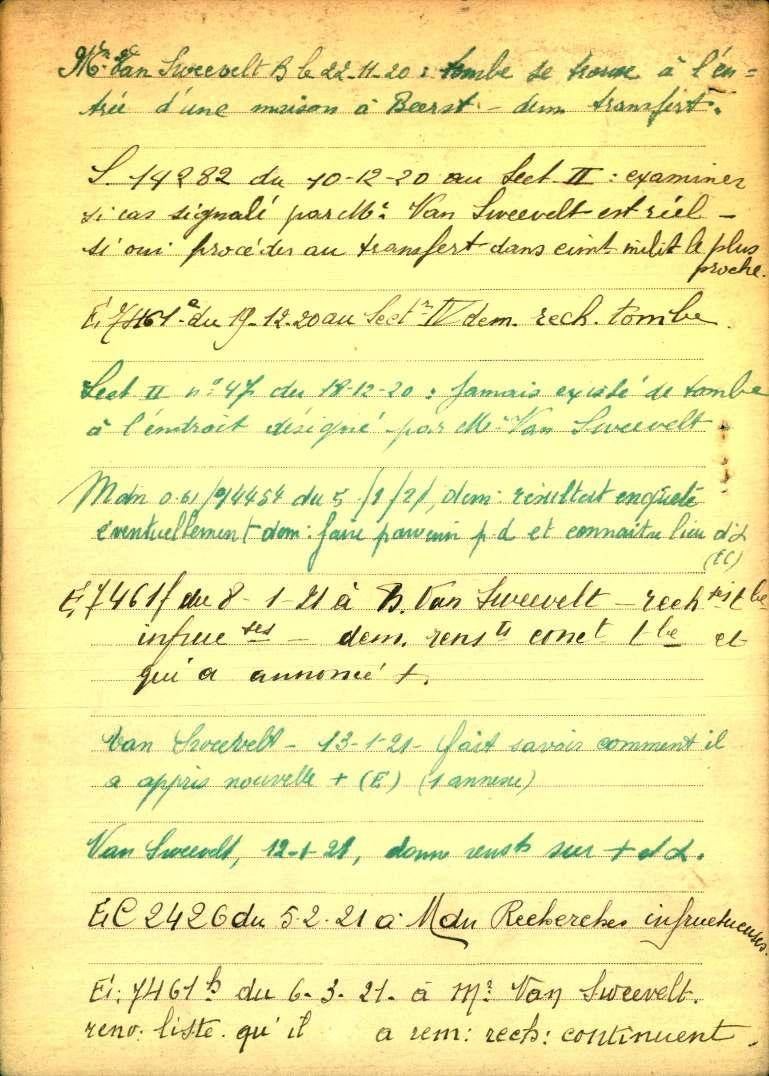 Mr Van Sweevelt B le 22-11-20 : tombe se trouve à l'en=
trée d'une maison à Beerst - dem. transfert.
S. 14282 du 10-12-20 au Sect. II : examiner
si cas signalé par Mr. Van Sweevelt est réel -
si oui procéder au transfert dans cimt. milit le plus
proche.
E, 7461 e du 19-12-20 au Sectr IV dem. rech. tombe.
Sect II n° 47 du 18-12-20 : Jamais existé de tombe
à l'endroit désigné par Mr Van Sweevelt
Mdn 0.61/94454 du 5/1/21, dem: résultat enquête
éventuellement - dem: faire parvenir p.d et connaitre lieu d'd
(EC)
E, 7461 f du 8-1-21 à B. Van Sweevelt - rech ses tbe
infruc ses - dem. rens ts conct tbe et
qui a annoncé +.
Van Sweevelt - 13-1-21 - fait savoir comment il
a appris nouvelle + (E) (1 annexe)
Van Sweevelt, 12-1-21, donne rensts sur + et d.
E,C 2426 du 5-2-21 à Mdn Recherches infructueuses.
E: 7461 h du 6-3-21- à Mr Van Sweevelt.
renv: liste. qu'il a rem: rech: continuent.